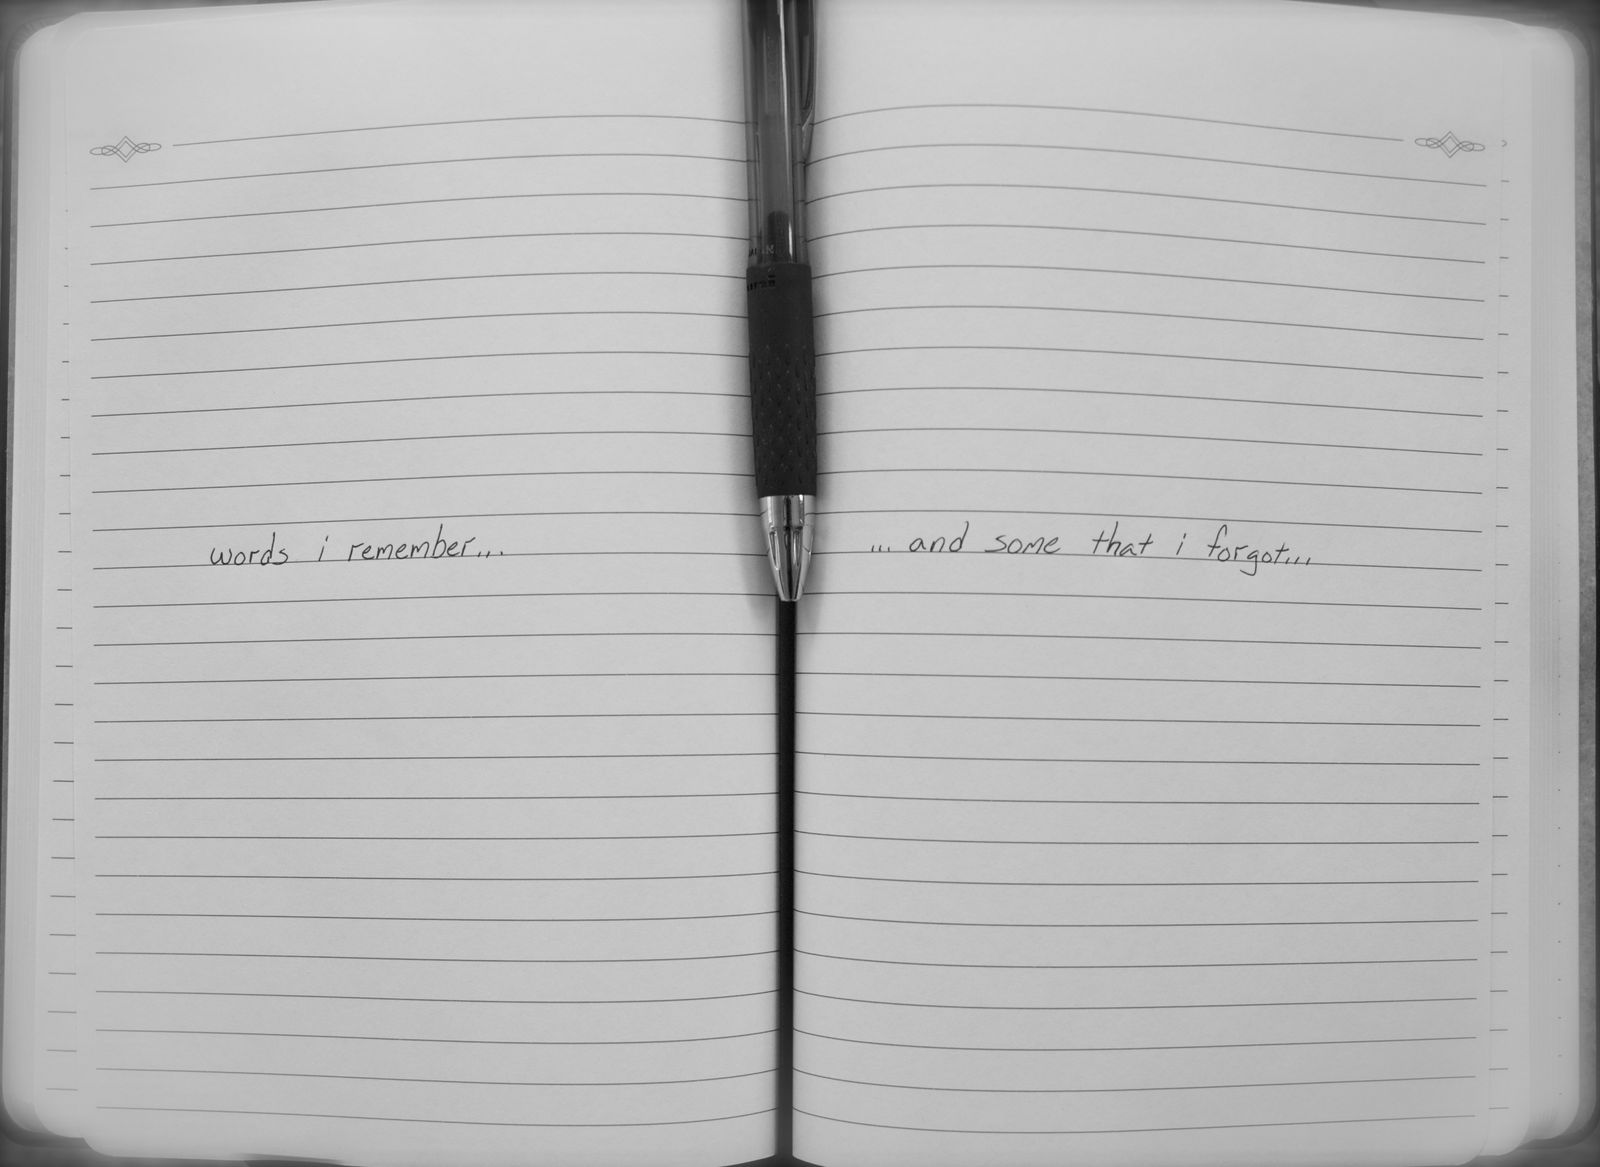 words i remember...
... and some that i forgot...